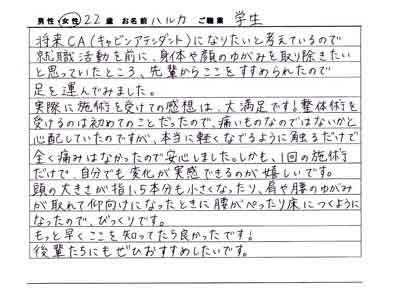 男性・女性 22歳 お名前 ハルカ ご職業 学生
将来CA(キャビンアテンダント)になりたいと考えているので
就職活動を前に、身体や顔のゆがみを取り除きたい
と思っていたところ、先輩からここをすすめられたので
足を運んでみました。
実際に施術を受けての感想は、大満足です!整体術を
受けるのは初めてのことだったので、痛いものなのではないかと
心配していたのですが、本当に軽くなでるように触るだけで
全く痛みはなかったので安心しました。しかも、1回の施術
だけで、自分でも変化が実感できるのが嬉しいです。
頭の大きさが指1.5本分も小さくなったり、肩や腰のゆがみ
が取れて仰向けになったときに腰がぺったり床につくように
なったので、びっくりです。
もっと早くここを知ってたら良かったです!
後輩たちにもぜひおすすめしたいです。